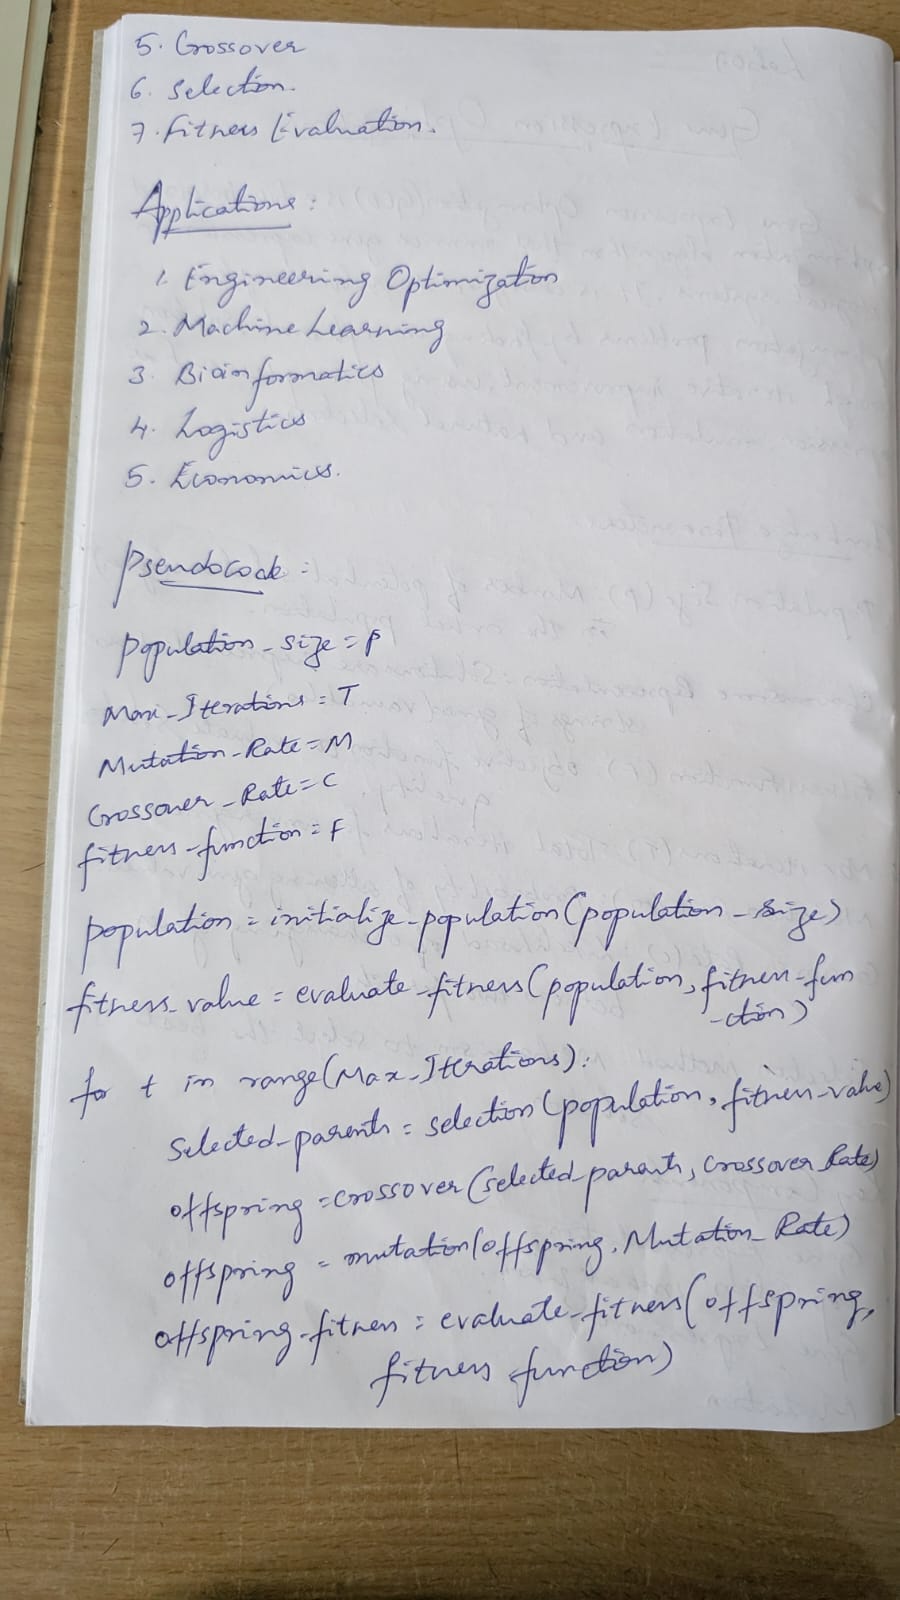 5. Crossover
6. Selection.
7. Fitness Evaluation.
Applications:
1. Engineering Optimization
2. Machine Learning
3. Bioinformatics
4. Logistics
5. Economics.
Pseudocode:
Population_size = P
Max_Iterations = T
Mutation_Rate = M
Crossover_Rate = C
fitness_function = F
population = initialize_population(population_size)
fitness_value = evaluate_fitness(population, fitness_fun
-ction)
for t in range(Max_Iterations):
Selected_parents = selection(population, fitness_value)
offspring = crossover(selected_parents, Crossover_Rate)
offspring = mutation(offspring, Mutation_Rate)
offspring_fitness = evaluate_fitness(offspring,
fitness function)